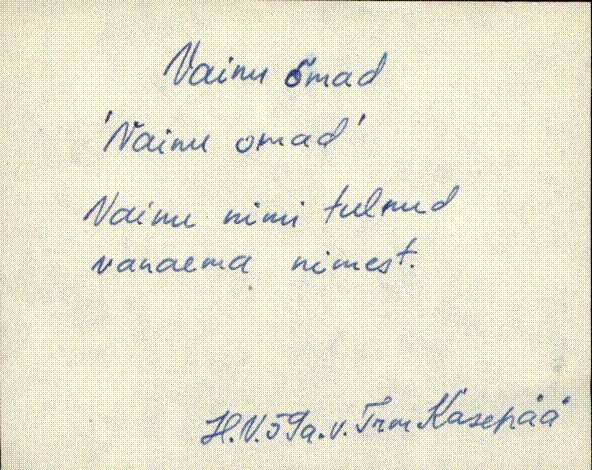 Vainu omad
'Vainu omad'
Vainu nimi tulnud
vanaema nimest.
H.V.59a.v. Trm Kasepää